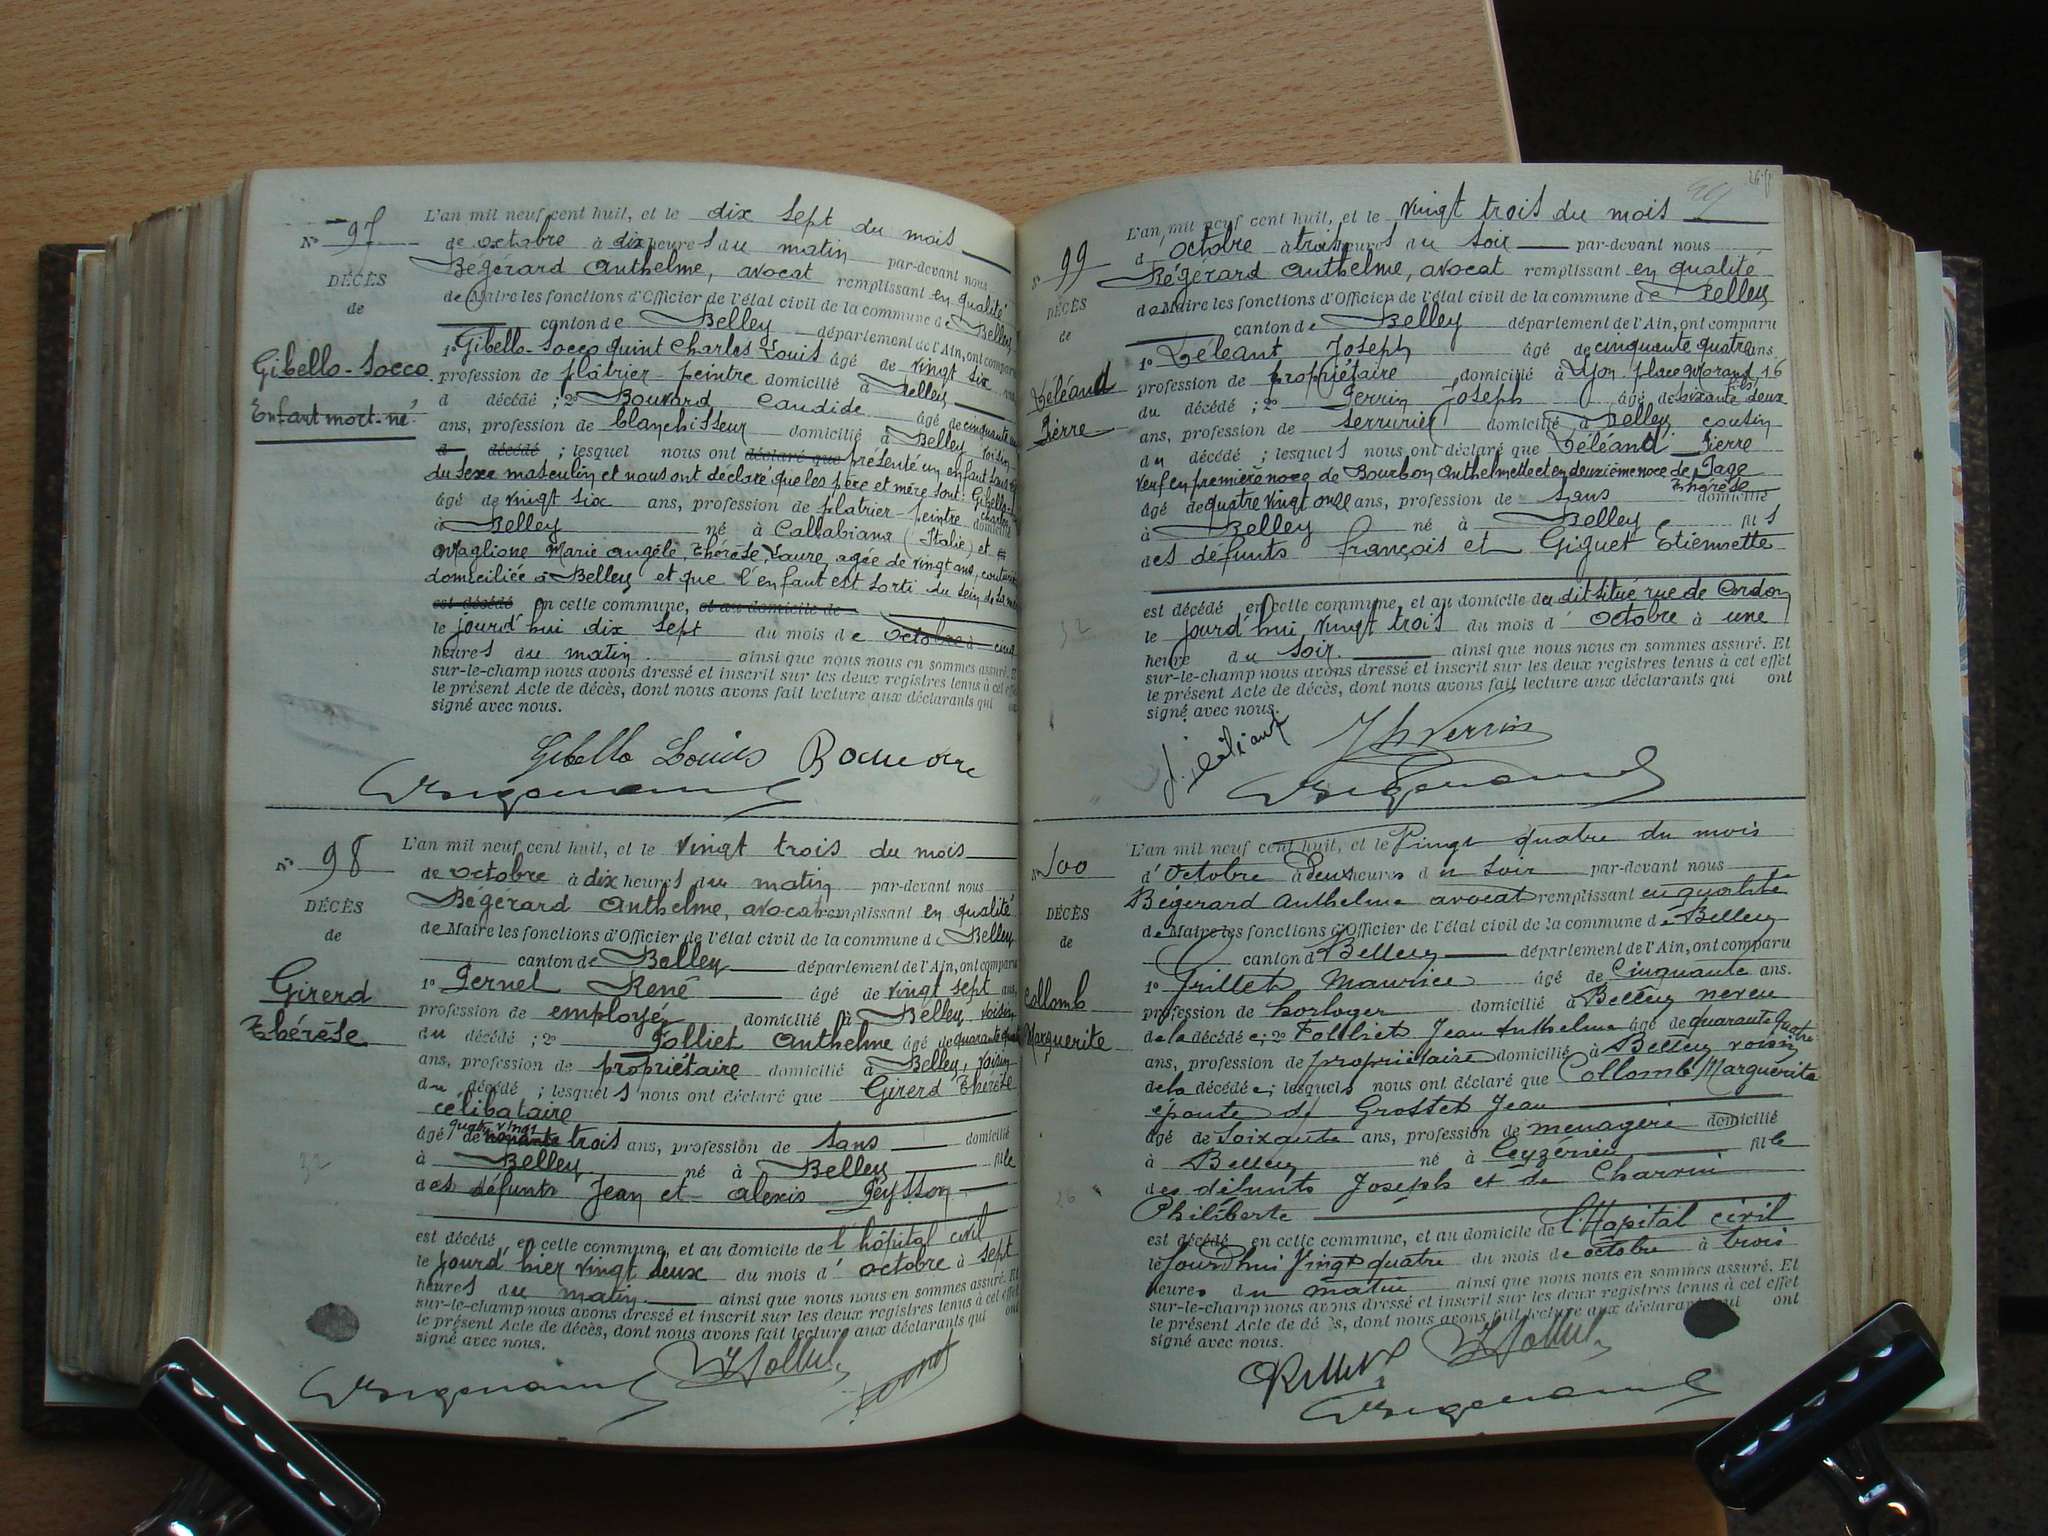 N° 97
DÉCÈS
de
Gibello-Socco
Enfant mort-né
L'an mil neuf cent huit, et le dix sept du mois
de octobre à dix heures du matin par-devant nous
Bégérard Anthelme, avocat remplissant en qualité
de Maire les fonctions d'Officier de l'état civil de la commune de Belley
canton de Belley département de l'Ain, ont comparu
1° Gibello-Socco quint Charles Louis âgé de vingt six
profession de plâtrier-peintre domicilié à Belley
d décédé ; 2° Bouvard Candide âgé de cinquante
ans, profession de blanchisseur domicilié à Belley voisin
d décédé ; lesquel nous ont déclaré que présenté un enfant sans vie
du sexe masculin et nous ont déclaré que les père et mère sont : Gibello
âgé de vingt six ans, profession de platrier-peintre domicilié
à Belley né à Callabiana (Italie) et
Maglione Marie Angèle, Thérèse, Laure, agée de vingt ans, couturière
domiciliée à Belley et que l'enfant est sorti du sein de sa mère
est décédé en cette commune, et au domicile de
le jourd'hui dix sept du mois de octobre à cinq
heures du matin ainsi que nous nous en sommes assuré. Et
sur-le-champ nous avons dressé et inscrit sur les deux registres tenus à cet effet
le présent Acte de décès, dont nous avons fait lecture aux déclarants qui ont
signé avec nous.
Gibello Louis
N° 98
DÉCÈS
de
Girerd
Thérèse
L'an mil neuf cent huit, et le vingt trois du mois
de octobre à dix heures du matin par-devant nous
Bégérard Anthelme, avocat remplissant en qualité
de Maire les fonctions d'Officier de l'état civil de la commune de Belley
canton de Belley département de l'Ain, ont comparu
1° Pernet René âgé de vingt sept ans,
profession de employé domicilié à Belley voisin
du décédé ; 2° Folliet Anthelme âgé de quarante quatre
ans, profession de propriétaire domicilié à Belley, voisin
du décédé ; lesquels nous ont déclaré que Girerd Thérèse
célibataire
âgé de quatre vingt nonante trois ans, profession de sans domicilié
à Belley né à Belley fille
des défunts Jean et Alexis Peysson
est décédé en cette commune, et au domicile de l'hôpital civil
le jourd'hier vingt deux du mois d'octobre à sept
heures du matin ainsi que nous nous en sommes assuré. Et
sur-le-champ nous avons dressé et inscrit sur les deux registres tenus à cet effet
le présent Acte de décès, dont nous avons fait lecture aux déclarants qui ont
signé avec nous.
N° 99
DÉCÈS
de
Téléand
Pierre
L'an mil neuf cent huit, et le vingt trois du mois
d'octobre à trois heures du soir par-devant nous
Bégérard Anthelme, avocat remplissant en qualité
de Maire les fonctions d'Officier de l'état civil de la commune de Belley
canton de Belley département de l'Ain, ont comparu
1° Téléant Joseph âgé de cinquante quatre ans,
profession de propriétaire domicilié à Lyon place Morand 16 fils
du décédé ; 2° Perrin Joseph âgé de soixante deux
ans, profession de serrurier domicilié à Belley cousin
du décédé ; lesquels nous ont déclaré que Téléand Pierre
veuf en première noce de Bourbon Anthelmette et en deuxième noce de Page Thérèse
âgé de quatre vingt onze ans, profession de sans domicilié
à Belley né à Belley fils
des défunts françois et Giguet Etiennette
est décédé en cette commune, et au domicile du dit situé rue de Cordon
le jourd'hui vingt trois du mois d octobre à une
heure du soir. ainsi que nous nous en sommes assuré. Et
sur-le-champ nous avons dressé et inscrit sur les deux registres tenus à cet effet
le présent Acte de décès, dont nous avons fait lecture aux déclarants qui ont
signé avec nous.
Jh Perrin
N° 100
DÉCÈS
de
Collomb
Marguerite
L'an mil neuf cent huit, et le Vingt quatre du mois
d'Octobre à deux heures du soir par-devant nous
Bégérard Anthelme avocat remplissant en qualité
de Maire les fonctions d'Officier de l'état civil de la commune de Belley
canton d Belley département de l'Ain, ont comparu
1° Grillet Maurice âgé de Cinquante ans.
profession de horloger domicilié à Belley neveu
de la décédée ; 2° Folliet Jean Anthelme âgé de quarante quatre
ans, profession de propriétaire domicilié à Belley voisin
de la décédée ; lesquels nous ont déclaré que Collomb Marguerite
épouse de Grosset Jean
âgé de Soixante ans, profession de ménagère domicilié
à Belley né à Ceyzérieu fille
des défunts Joseph et de Charvin
Philiberte
est décédé en cette commune, et au domicile de l'Hopital civil
le Jourd'hui Vingt quatre du mois de octobre à trois
heures du matin ainsi que nous nous en sommes assuré. Et
sur-le-champ nous avons dressé et inscrit sur les deux registres tenus à cet effet
le présent Acte de décès, dont nous avons fait lecture aux déclarants qui ont
signé avec nous.